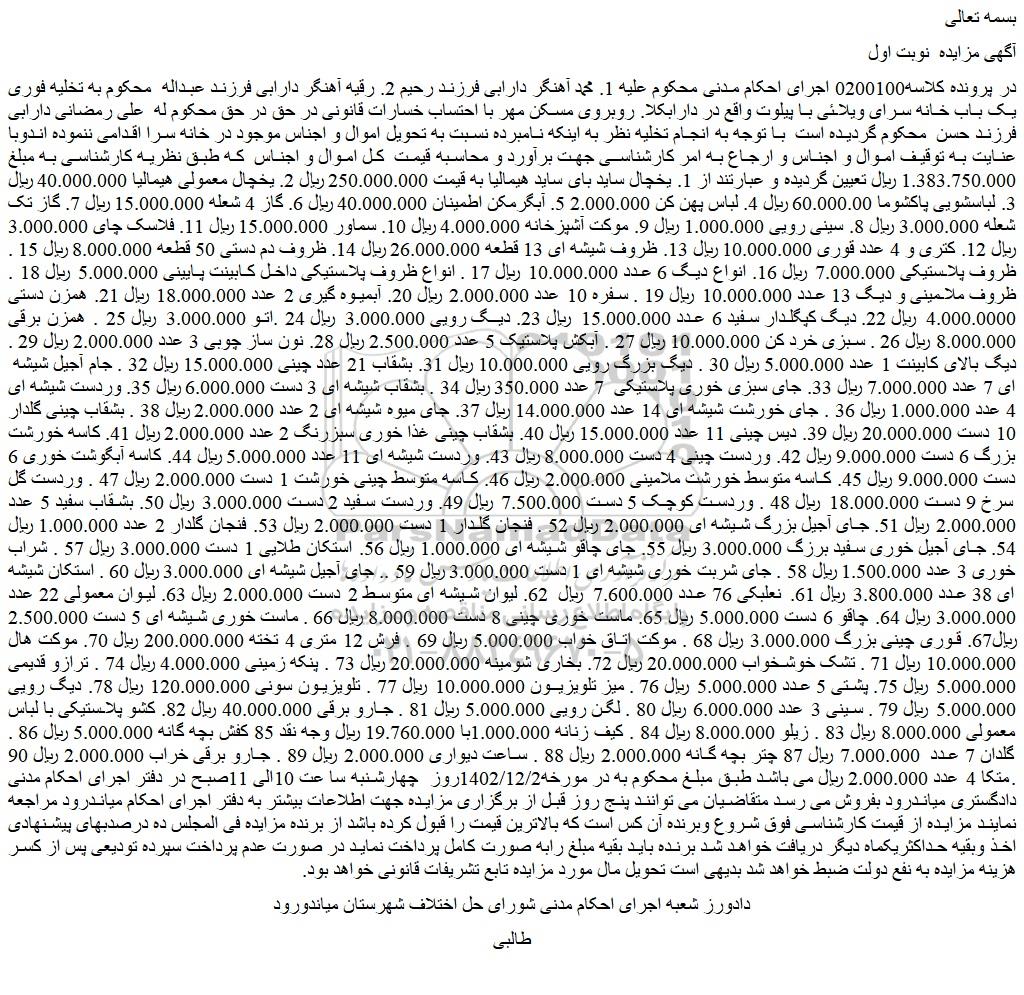 بسمه تعالی
آگهی مزایده  نوبت اول
در پرونده کلاسه0200100 اجرای احکام مدنی محکوم علیه 1. محمد آهنگر دارابی فرزند رحیم 2. رقیه آهنگر دارابی فرزند عبداله  محکوم به تخلیه فوری
یک باب خانه سرای ویلائی با پیلوت واقع در دارابکلا. روبروی مسکن مهر با احتساب خسارات قانونی در حق در حق محکوم له  علی رمضانی دارابی
فرزند حسن  محکوم گردیده است  با توجه به انجام تخلیه نظر به اینکه نامبرده نسبت به تحویل اموال و اجناس موجود در خانه سرا اقدامی ننموده اندوبا
عنایت به توقیف اموال و اجناس و ارجاع به امر کارشناسی جهت برآورد و محاسبه قیمت  کل اموال و اجناس  که طبق نظریه کارشناسی به مبلغ
1.383.750.000 ریال تعیین گردیده و عبارتند از 1. یخچال ساید بای ساید هیمالیا به قیمت 250.000.000 ریال 2. یخچال معمولی هیمالیا 40.000.000 ریال
3. لباسشویی پاکشوما 60.000.00 ریال 4. لباس پهن کن 2.000.000 5. آبگرمکن اطمینان 40.000.000 ریال 6. گاز 4 شعله 15.000.000 ریال 7. گاز تک
شعله 3.000.000 ریال 8. سینی رویی 1.000.000 ریال 9. موکت آشپزخانه 4.000.000 ریال 10. سماور 15.000.000 ریال 11. فلاسک چای 3.000.000
ریال 12. کتری و 4 عدد قوری 10.000.000 ریال 13. ظروف شیشه ای 13 قطعه 26.000.000 ریال 14. ظروف دم دستی 50 قطعه 8.000.000 ریال 15 .
ظروف پلاستیکی 7.000.000  ریال 16. انواع دیگ 6 عدد 10.000.000  ریال 17 . انواع ظروف پلاستیکی داخل کابینت پایینی 5.000.000  ریال  18 .
ظروف ملامینی و دیگ 13 عدد 10.000.000  ریال 19 . سفره 10 عدد 2.000.000 ریال 20. آبمیوه گیری 2 عدد 18.000.000  ریال 21. همزن دستی
4.000.0000  ریال 22. دیگ کپگلدار سفید 6 عدد 15.000.000  ریال 23. دیگ رویی 3.000.000  ریال 24 .اتو 3.000.000  ریال 25 . همزن برقی
8.000.000 ریال 26 . سبزی خرد کن 10.000.000 ریال 27 . آبکش پلاستیک 5 عدد 2.500.000 ریال 28. نون ساز چوبی 3 عدد 2.000.000 ریال 29 .
دیگ بالای کابینت 1 عدد 5.000.000 ریال 30 . دیگ بزرگ رویی 10.000.000 ریال 31. بشقاب 21 عدد چینی 15.000.000 ریال 32 . جام آجیل شیشه
ای 7 عدد 7.000.000 ریال 33. جای سبزی خوری پلاستیکی  7 عدد 350.000 ریال 34 . بشقاب شیشه ای 3 دست 6.000.000 ریال 35. وردست شیشه ای
4 عدد 1.000.000 ریال 36 . جای خورشت شیشه ای 14 عدد 14.000.000 ریال 37. جای میوه شیشه ای 2 عدد 2.000.000 ریال 38 . بشقاب چینی گلدار
10 دست 20.000.000 ریال 39. دیس چینی 11 عدد 15.000.000 ریال 40. بشقاب چینی غذا خوری سبزرنگ 2 عدد 2.000.000 ریال 41. کاسه خورشت
بزرگ 6 دست 9.000.000 ریال 42. وردست چینی 4 دست 8.000.000 ریال 43. وردست شیشه ای 11 عدد 5.000.000 ریال 44. کاسه آبگوشت خوری 6
دست 9.000.000 ریال 45. کاسه متوسط خورشت ملامینی 2.000.000 ریال 46. کاسه متوسط چینی خورشت 1 دست 2.000.000 ریال 47 . وردست گل
سرخ 9 دست 18.000.000  ریال 48 . وردست کوچک 5 دست 7.500.000  ریال 49. وردست سفید 2 دست 3.000.000  ریال 50. بشقاب سفید 5 عدد
2.000.000 ریال 51. جای آجیل بزرگ شیشه ای 2.000.000 ریال 52 . فنجان گلدار 1 دست 2.000.000 ریال 53. فنجان گلدار 2 عدد 1.000.000 ریال
54. جای آجیل خوری سفید برزگ 3.000.000 ریال 55. جای چاقو شیشه ای 1.000.000 ریال 56. استکان طلایی 1 دست 3.000.000 ریال 57 . شراب
خوری 3 عدد 1.500.000 ریال 58 . جای شربت خوری شیشه ای 1 دست 3.000.000 ریال 59 .. جای آجیل شیشه ای 3.000.000 ریال 60 . استکان شیشه
ای 38 عدد 3.800.000 ریال 61.  نعلبکی 76 عدد 7.600.000  ریال  62. لیوان شیشه ای متوسط 2 دست 2.000.000 ریال 63. لیوان معمولی 22 عدد
3.000.000 ریال 64. چاقو 6 دست 5.000.000 ریال 65. ماست خوری چینی 8 دست 8.000.000 ریال 66 . ماست خوری شیشه ای 5 دست 2.500.000
ریال67. قوری چینی بزرگ 3.000.000 ریال 68 . موکت اتاق خواب 5.000.000 ریال 69 . فرش 12 متری 4 تخته 200.000.000 ریال 70. موکت هال
10.000.000 ریال 71 . تشک خوشخواب 20.000.000 ریال 72. بخاری شومینه 20.000.000 ریال 73 . پنکه زمینی 4.000.000 ریال 74 . ترازو قدیمی
5.000.000  ریال 75. پشتی 5 عدد 5.000.000  ریال 76 . میز تلویزیون 10.000.000  ریال 77 . تلویزیون سونی 120.000.000 ریال 78. دیگ رویی
5.000.000  ریال 79 . سینی 3 عدد 6.000.000 ریال 80 . لگن رویی 5.000.000 ریال 81 . جارو برقی 40.000.000 ریال 82. کشو پلاستیکی با لباس
معمولی 8.000.000 ریال 83 . زیلو 8.000.000 ریال 84 . کیف زنانه 1.000.000با 19.760.000 ریال وجه نقد 85 کفش بچه گانه 5.000.000 ریال 86 .
گلدان 7 عدد  7.000.000 ریال 87 چتر بچه گانه 2.000.000 ریال 88 . ساعت دیواری 2.000.000 ریال 89 . جارو برقی خراب 2.000.000 ریال 90
.متکا 4 عدد 2.000.000 ریال می باشد طبق مبلغ محکوم به در مورخه1402/12/2روز  چهارشنبه سا عت 10الی 11صبح در دفتر اجرای احکام مدنی
دادگستری میاندرود بفروش می رسد متقاضیان می توانند پنج روز قبل از برگزاری مزایده جهت اطلاعات بیشتر به دفتر اجرای احکام میاندرود مراجعه
نمایند مزایده از قیمت کارشناسی فوق شروع وبرنده آن کس است که بالاترین قیمت را قبول کرده باشد از برنده مزایده فی المجلس ده درصدبهای پیشنهادی
اخذ وبقیه حداکثریکماه دیگر دریافت خواهد شد برنده باید بقیه مبلغ رابه صورت کامل پرداخت نماید در صورت عدم پرداخت سپرده تودیعی پس از کسر
هزینه مزایده به نفع دولت ضبط خواهد شد بدیهی است تحویل مال مورد مزایده تابع تشریفات قانونی خواهد بود.
دادورز شعبه اجرای احکام مدنی شورای حل اختلاف شهرستان میاندورود
طالبی
ParsNamadData
پایگاه اطلاع رسانی مناقصه و مزایده
۰۲۱-۸۸۳۴۹۶۷۰-۵